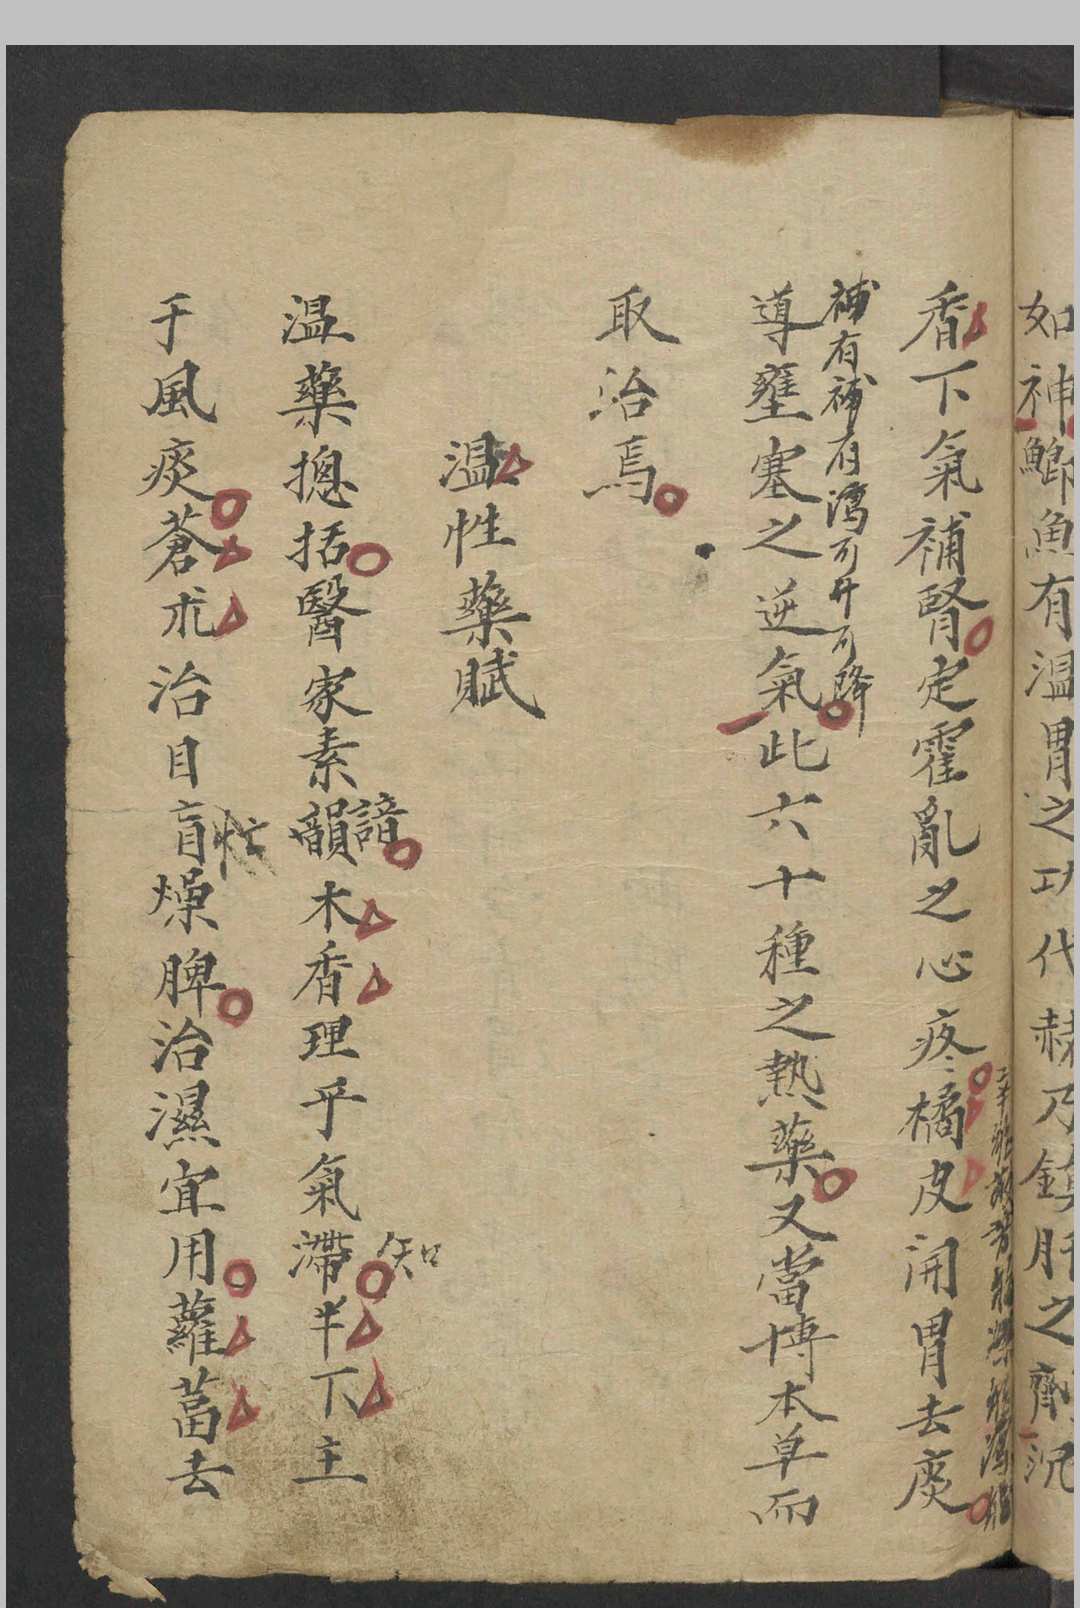 如神鯽魚有温胃之功代赫乃鎮肝之劑沉
香下氣補腎定霍亂之心疼橘皮開胃去痰
補有補有瀉可升可降
導壅塞之逆氣此六十種之熱藥又當博本草而
取治焉
温性藥賦
温藥揔括醫家素韻木香理乎氣滯半下主
諳
知
于風痰蒼朮治目盲燥脾治濕宜用蘿蔔去